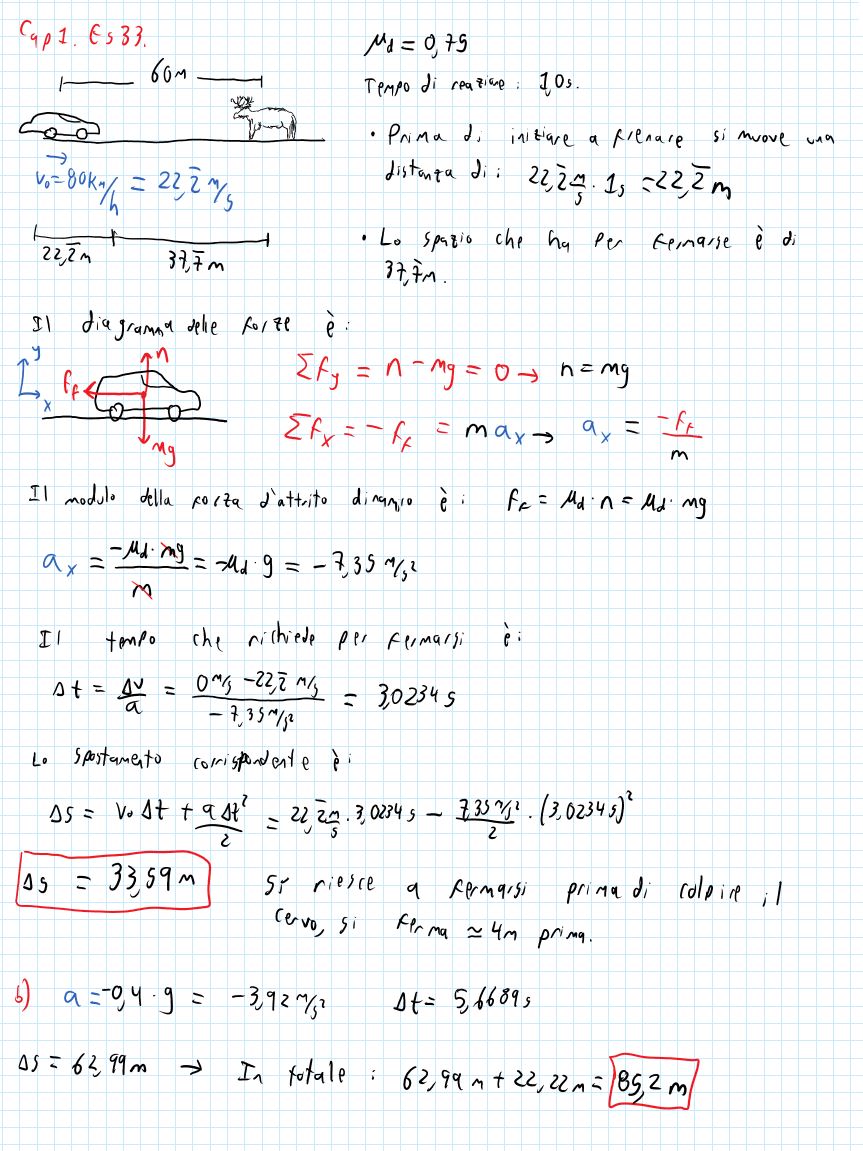 Cap 1. Es 33.
60m
v₀ = 80 km/h = 22,2̅ m/s
22,2̅ m
37,7̅ m
μd = 0,75
Tempo di reazione: 1,0s.
• Prima di iniziare a frenare si muove una
distanza di: 22,2̅ m/s · 1s = 22,2̅ m
• Lo spazio che ha per fermarse è di
37,7̅ m.
Il diagramma delle forze è:
y
x
n
Ff
mg
ΣFy = n - mg = 0 → n = mg
ΣFx = -Ff = m ax → ax = -Ff/m
Il modulo della forza d'attrito dinamico è: Ff = μd · n = μd · mg
ax = -μd · mg/m = -μd · g = -7,35 m/s²
Il tempo che richiede per fermarsi è:
Δt = Δv/a = (0 m/s - 22,2̅ m/s)/(-7,35 m/s²) = 3,0234 s
Lo spostamento corrispondente è:
Δs = v₀ Δt + a Δt²/2 = 22,2̅ m/s · 3,0234 s - 7,35 m/s²/2 · (3,0234 s)²
Δs = 33,59 m
Si riesce a fermarsi prima di colpire il
cervo, si ferma ≃ 4m prima.
b) a = -0,4 · g = -3,92 m/s² Δt = 5,6689 s
Δs = 62,99 m → In totale: 62,99 m + 22,22 m = 85,2 m